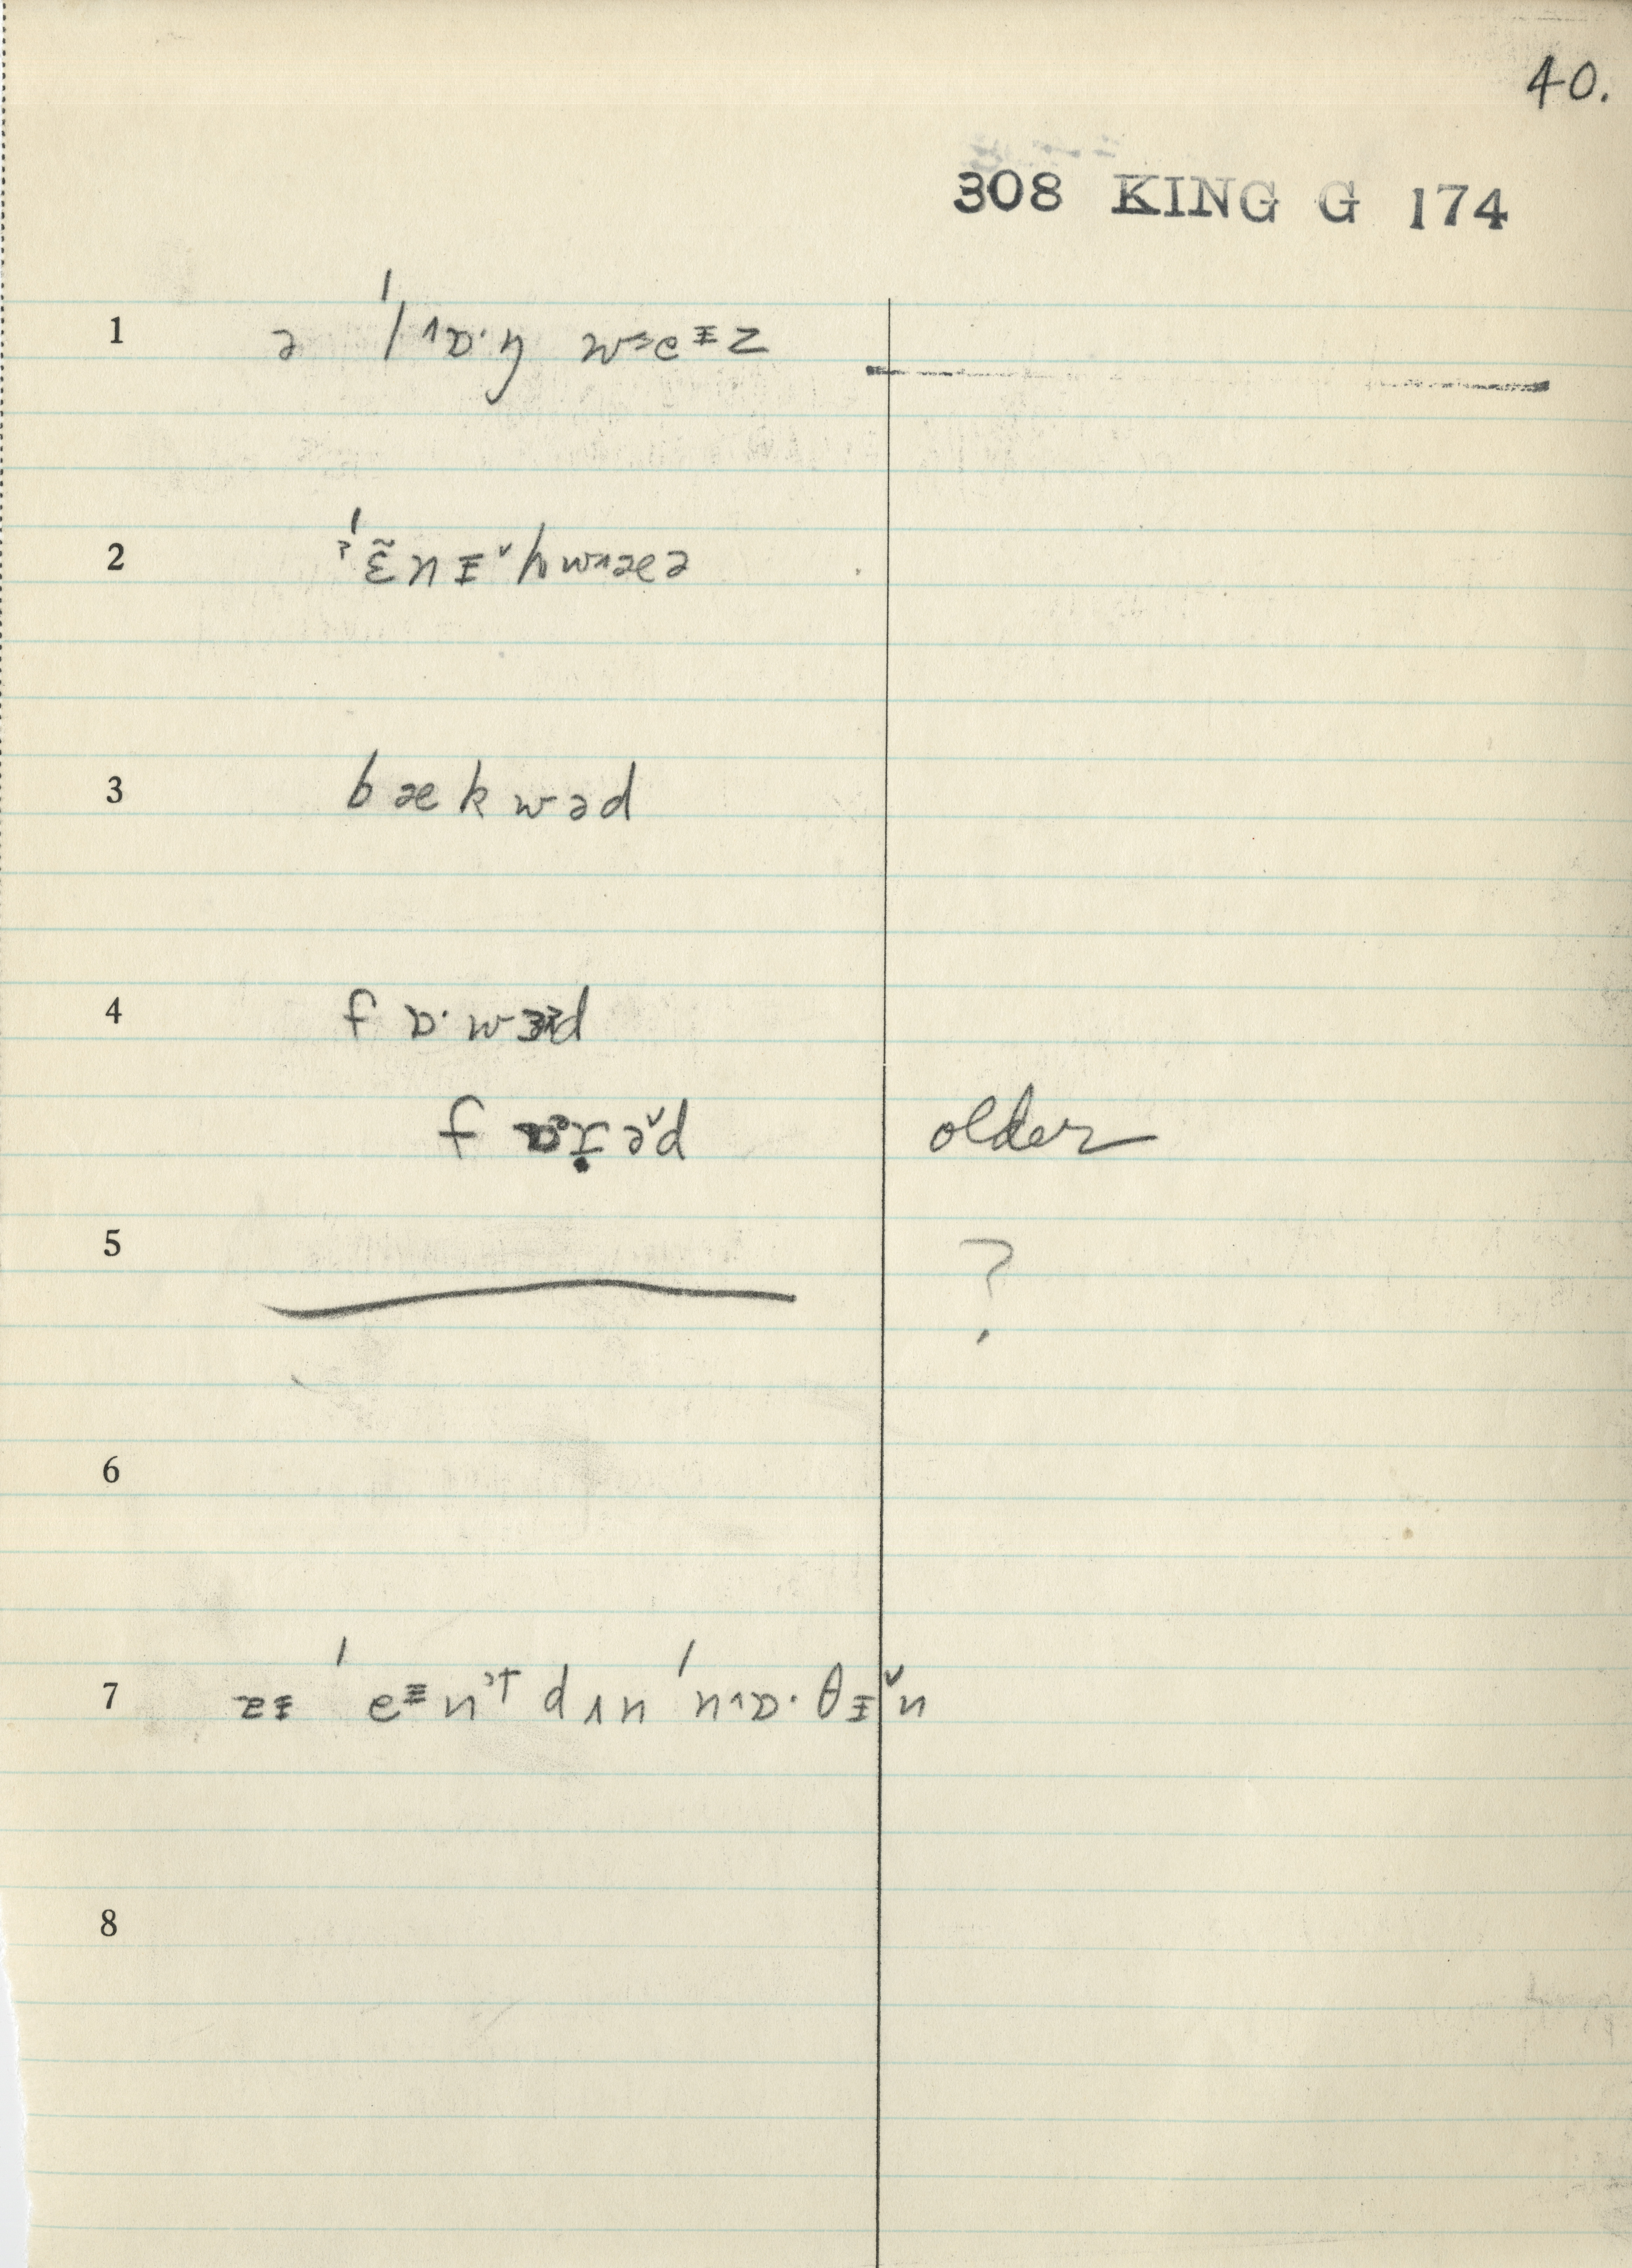 40.
308 KING G 174
1 ə ˈl^ɒ·ŋ wɜeᵻz
2 ˈɛ̃nɪ̵ˇhwᴧæə
3 bækwəd
4 fɒ·wəd
f əˇd older
5 ?
6
7 ˈeᵻn dʌn ˈn^ɒ·θɪ̵ˇn
8